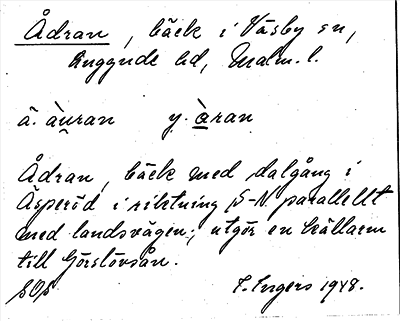 Ådran, bäck i Väsby sn,
Luggude hd, Malm. l.
ä. àu̯ran y. àran
Ådran, bäck med dalgång i
Äsperöd i riktning S-N parallellt
med landsvägen; utgör en källarm
till Görslövsån.
I. Ingers 1948.